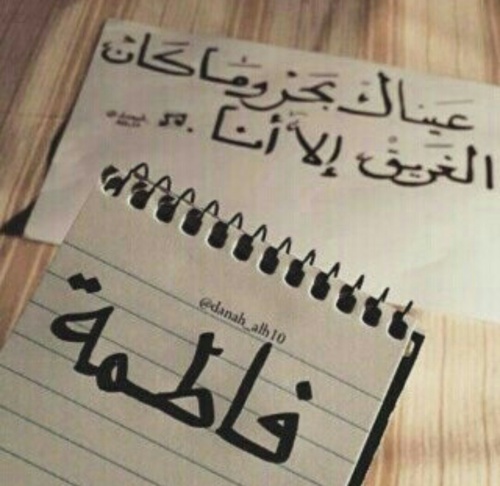 عيناك بحر وما كان
الغريق إلا أنا
@danah_alh10
فاطمة